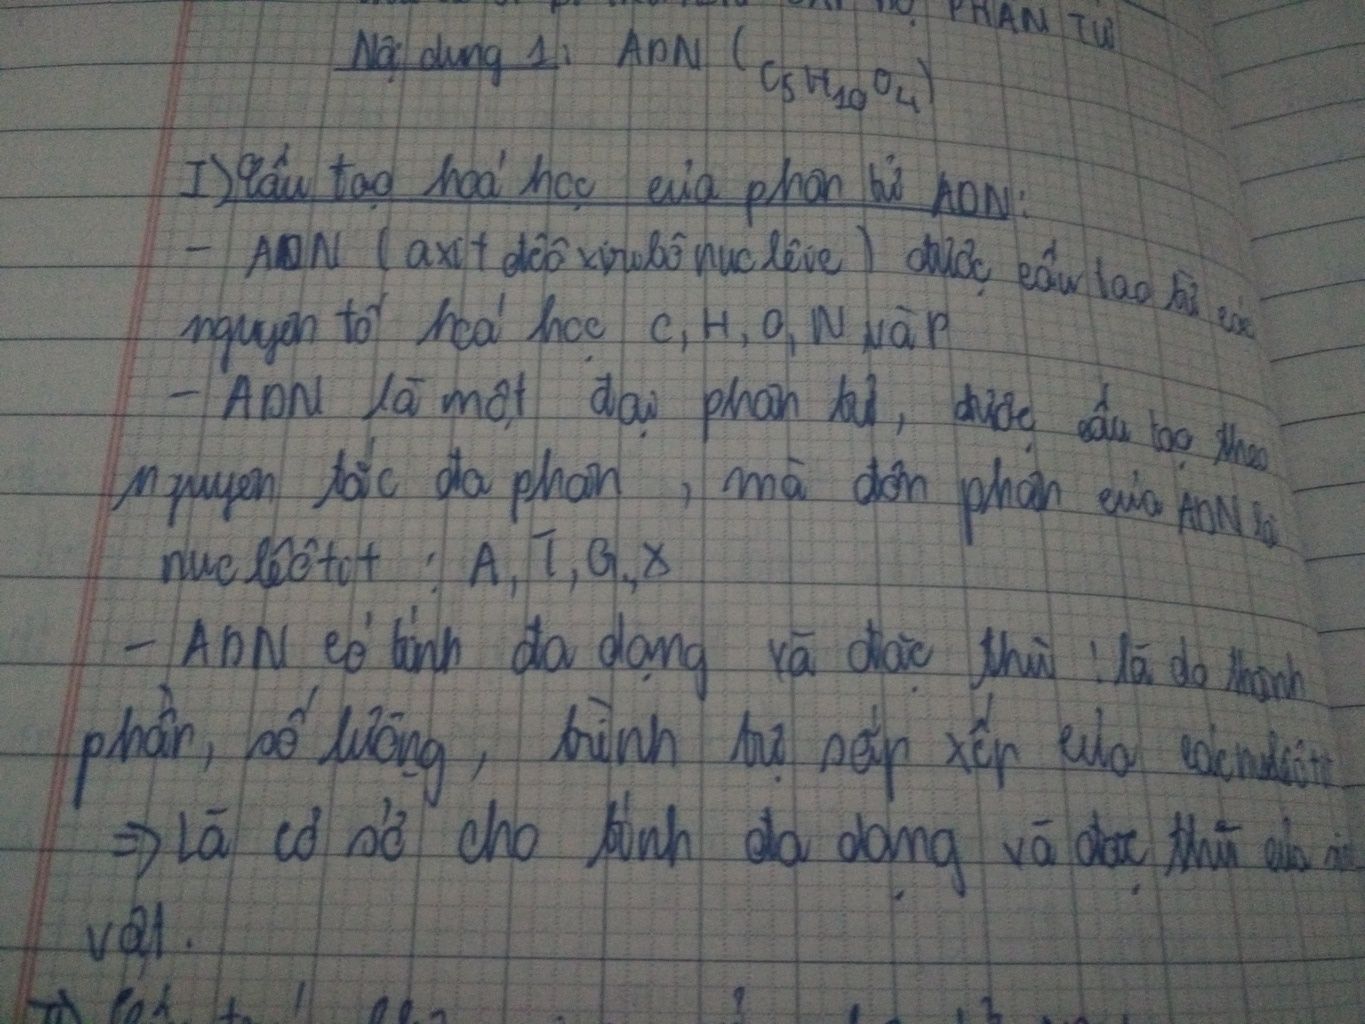 PHÂN TỬ
Nội dung 1: ADN (C5H10O4)
I) Cấu tạo hoá học của phân tử ADN:
- ADN (axit đêôxiribônuclêie) được cấu tạo từ các
nguyên tố hoá học C, H, O, N và P
- ADN là một đại phân tử, được cấu tạo theo
nguyên tắc đa phân, mà đơn phân của ADN là
nuclêôtit: A, T, G, X
- ADN có tính đa dạng và đặc thù: là do thành
phần, số lượng, trình tự sắp xếp của các nuclêôtit
=> Là cơ sở cho tính đa dạng và đặc thù của
vật.